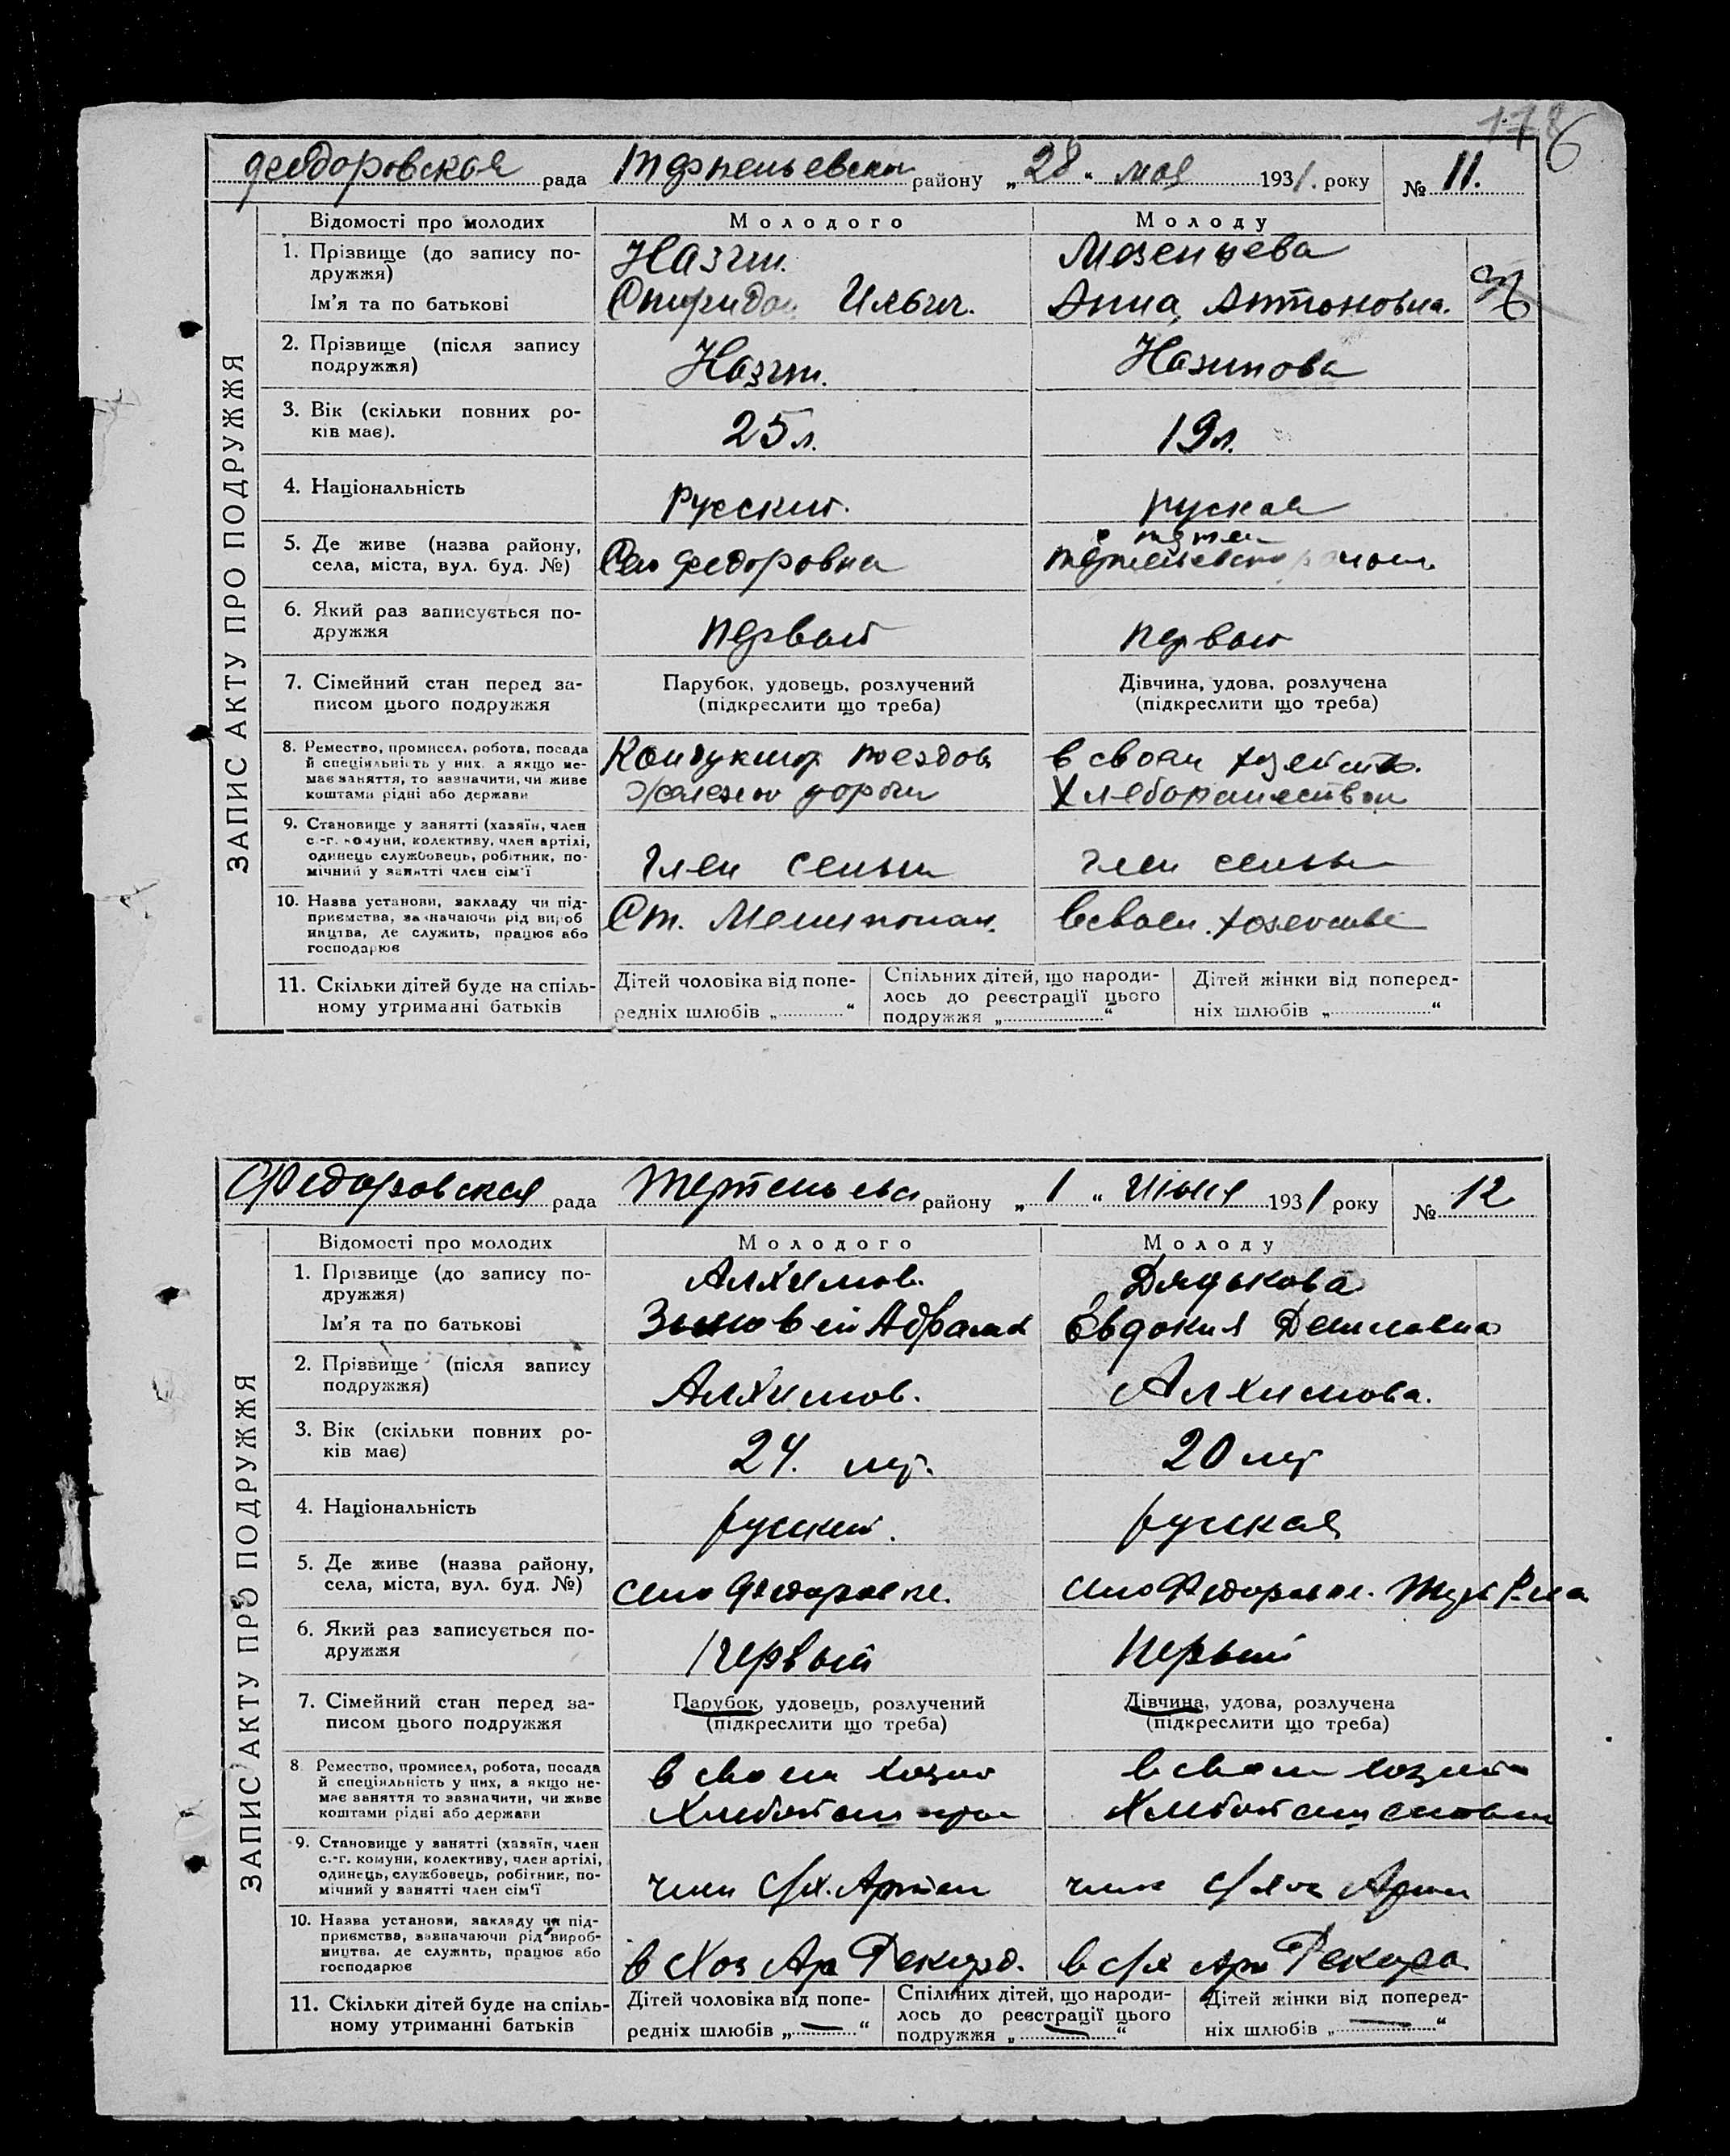 федоровская рада Терпеньевски району „28“ мая 1931. року № 11.
Відомості про молодих Молодого Молоду
1. Прізвище (до запису по-
дружжя)
Мезенцева
Ім'я та по батькові Спиридон Ильич. Анна Антоновна.
2. Прізвище (після запису
подружжя)
3. Вік (скільки повних ро-
ків має).
25 л. 19 л.
4. Національність Русский. руская
5. Де живе (назва району,
села, міста, вул. буд. №) Село федоровка
6. Який раз записується по-
дружжя
первый первый
7. Сімейний стан перед за-
писом цього подружжя
Парубок, удовець, розлучений
(підкреслити що треба)
Дівчина, удова, розлучена
(підкреслити що треба)
8. Ремество, промисел, робота, посада
й спеціяльність у них, а якщо не-
має заняття, то зазначити, чи живе
коштами рідні або держави
Кондуктор поездов
железно дороги
в своем
9. Становище у занятті (хазяїн, член
с.-г. комуни, колективу, член артілі,
одинець службовець, робітник, по-
мічний у занятті член сім'ї
член семьи член семьи
10. Назва установи, закладу чи під-
приємства, зазначаючи рід вироб
ництва, де служить, працює або
господарює
Ст. в своем
11. Скільки дітей буде на спіль-
ному утриманні батьків
Дітей чоловіка від попе-
редніх шлюбів „ “
Спільних дітей, що народи-
лось до реєстрації цього
подружжя „ “
Дітей жінки від поперед-
ніх шлюбів „ “
ЗАПИС АКТУ ПРО ПОДРУЖЖЯ
Федоровская рада району „1“ июня 1931 року № 12
Відомості про молодих Молодого Молоду
1. Прізвище (до запису по-
дружжя)
Алхимов. Дядькова
Ім'я та по батькові Зиновей Абрамов Евдокия Даниловна
2. Прізвище (після запису
подружжя)
Алхимов. Алхимова.
3. Вік (скільки повних ро-
ків має)
24. лет. 20 лет
4. Національність русский. руская
5. Де живе (назва району,
села, міста, вул. буд. №) село Федоровке. село Федоровке.
6. Який раз записується по-
дружжя
первый Первый
7. Сімейний стан перед за-
писом цього подружжя
Парубок, удовець, розлучений
(підкреслити що треба)
Дівчина, удова, розлучена
(підкреслити що треба)
8. Ремество, промисел, робота, посада
й спеціяльність у них, а якщо не-
має заняття то зазначити, чи живе
коштами рідні або держави
в своем в своем
9. Становище у занятті (хазяїн, член
с.-г. комуни, колективу, член артілі,
одинець, службовець, робітник, по-
мічний у занятті член сім'ї
член с/х. Артели член
10. Назва установи, закладу чи під-
приємства, зазначаючи рід вироб-
ництва, де служить, працює або
господарює
в Рекорд. в с/х Рекорд
11. Скільки дітей буде на спіль-
ному утриманні батьків
Дітей чоловіка від попе-
редніх шлюбів „—“
Спільних дітей, що народи-
лось до реєстрації цього
подружжя „—“
Дітей жінки від поперед-
ніх шлюбів „—“
ЗАПИС АКТУ ПРО ПОДРУЖЖЯ